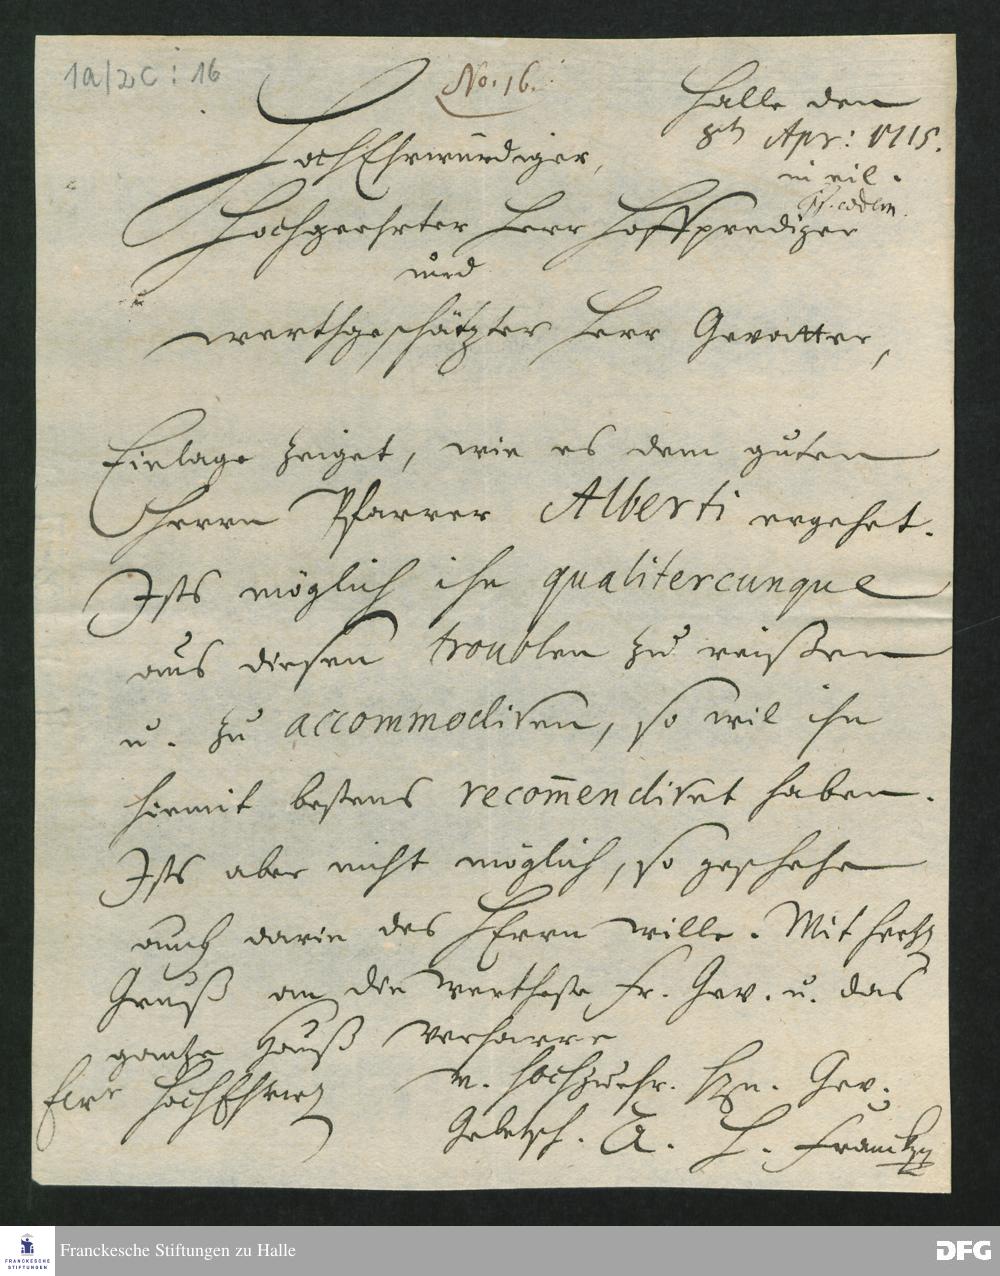 1a/2c : 16
No. 16.
Halle den
8ten Apr: 1715.
in eil.
pf. eodem.
HochEhrwürdiger,
Hochgeehrter Herr Hoffprediger
und
werthgeschätzter Herr Gevatter,
Einlage zeiget, wie es dem guten
Herrn Pfarrer Alberti ergehet.
Ists möglich ihn qualitercunque
aus diesen troublen zu reißen
u. zu accommodiren, so wil ihn
hiermit bestens recom̄endiret haben.
Ists aber nicht möglich, so geschehe
auch darin des HErrn wille. Mit hertzl.
Gruß an die wertheste Fr. Gev. u. das
gantze Hauß verharre
Ewr HochEhrw.
m. hochzuehr. Hrn. Gev.
Gebetsch. A. H. Francke
Franckesche Stiftungen zu Halle
FRANCKESCHE
STIFTUNGEN
DFG